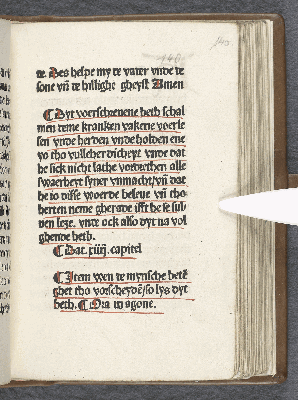 te. Des helpe my te vater vnde te
sone vñ te hillighe gheyst Amen
¶ Dyt voerschreuene beth schal
men teme kranken vakene voerle
sen vnde herden vnde holden ene
yo tho vullcher bicheyt vnde dat
he sick nicht lathe vorderthen alle
swarheyt syner vnmacht/vñ dat
he io disse woerde beleue vñ tho
herten neme gherade ifft he se sul
uen leze. vnde ock also dyt na vol
ghende beth.
¶ Dat .xiiij. capitel
¶ Item wen te mynsche betē
ghet tho vorscheydē/so lys dyt
beth. ¶ Ora in agone.